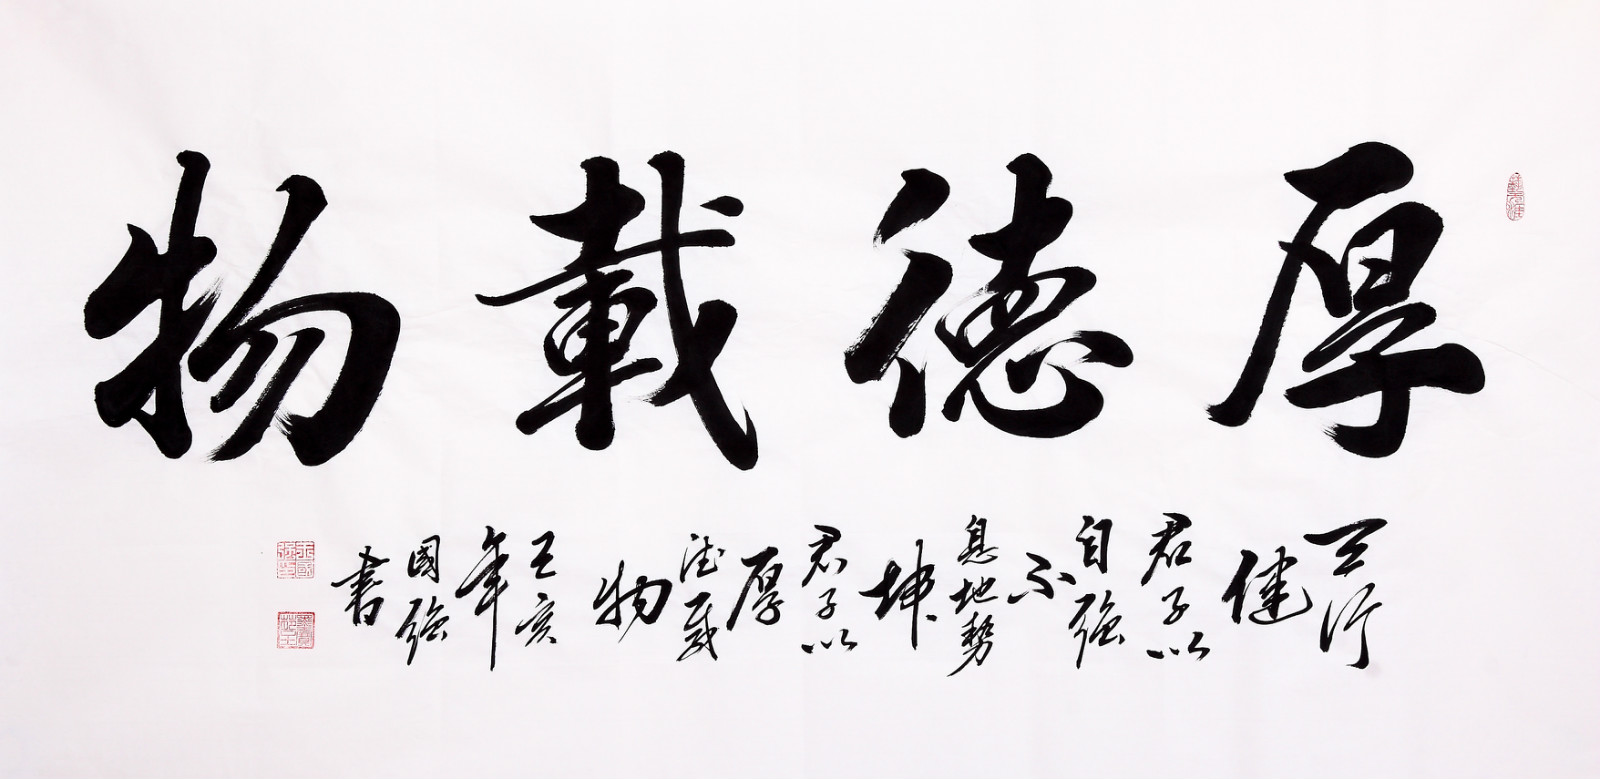 厚德載物
天行
健
君子以
自強
不
息地勢
坤
君子以
厚
德載
物
己亥
年
國強
書